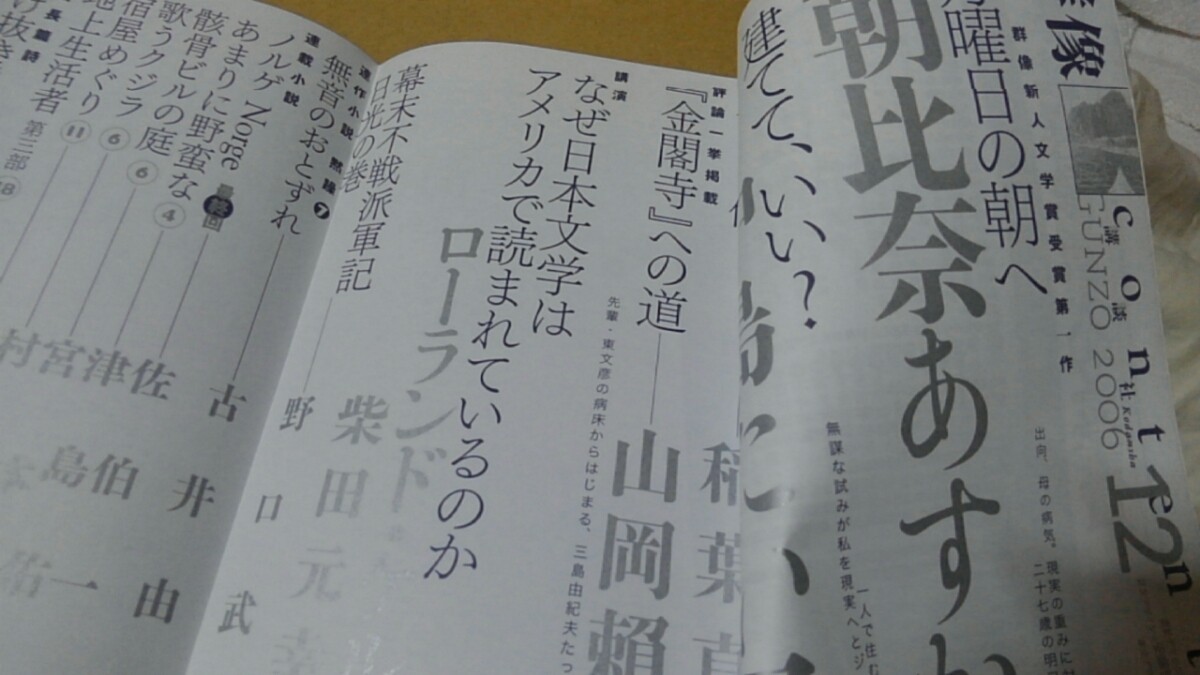 群像
contents
講談社 Kodansha
GUNZO 2006
12
群像新人文学賞受賞第一作
月曜日の朝へ
朝比奈あすか
出向、母の病気。現実の重みに
二十七歳の明
建てて、いい?
無謀な試みが私を現実へとジ
一人で住む
評論一挙掲載
『金閣寺』への道
山岡頼
先輩・東文彦の病床からはじまる、三島由紀夫たっ
稲葉真
講演
なぜ日本文学は
アメリカで読まれているのか
ローランド
幕末不戦派軍記
日光の巻
野口武
連作小説 黙躁⑦
無音のおとずれ
古井由
連載小説
ノルゲ Norge 最終回
佐伯一
あまりに野蛮な④
津島佑
骸骨ビルの庭⑥
宮
歌うクジラ⑥
村
宿屋めぐり⑪
地上生活者 第三部
長篇詩
柴田元幸